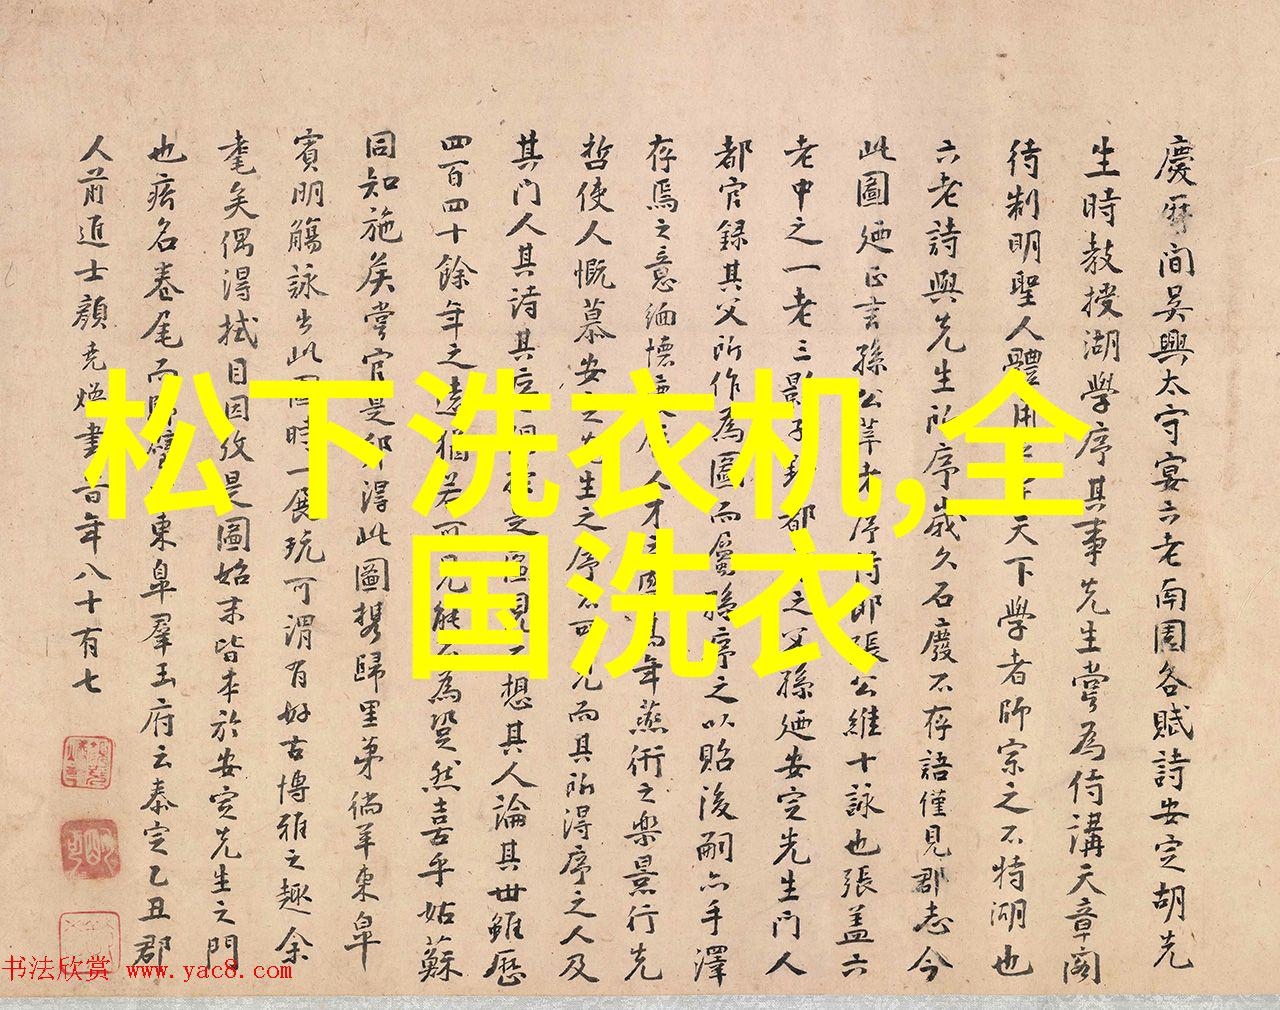 慶曆間吳興太守宴六老南園各賦詩安定胡先
生時教授湖學序其事先生嘗為侍講天章閣
待制明聖人體用 天下學者師宗之不特湖也
六老詩與先生所序歲久石廢不存語僅見郡志今
此圖廼 孫公莘才序侍郎張公維十詠也張蓋六
老中之一老三影子 都 之父孫廼安定先生門人
都官錄其父所作為圖而屬孫序之以貽後嗣六手澤
存焉之意緬懷 人才之 年燕術之樂景行先
哲使人慨慕安定先生之序不可見而其所得序之人及
其門人其詩其 之 見 想其人論其世雖歷
四百四十餘年之遠猶若可見 為 然喜乎姑蘇
同知施侯嘗官是 得此圖攜歸里第徜羊東皐
賓明觴詠出此圖時一展玩可謂有好古博雅之趣余
耄矣偶得拭目因攷是圖始末皆本於安定先生之門
也 名卷尾而歸 東皐羣玉府云泰定乙丑郡
人前進士顏堯煥書 百年八十有七
松下洗衣机,全
国洗衣
书法欣赏 www.yac8.com